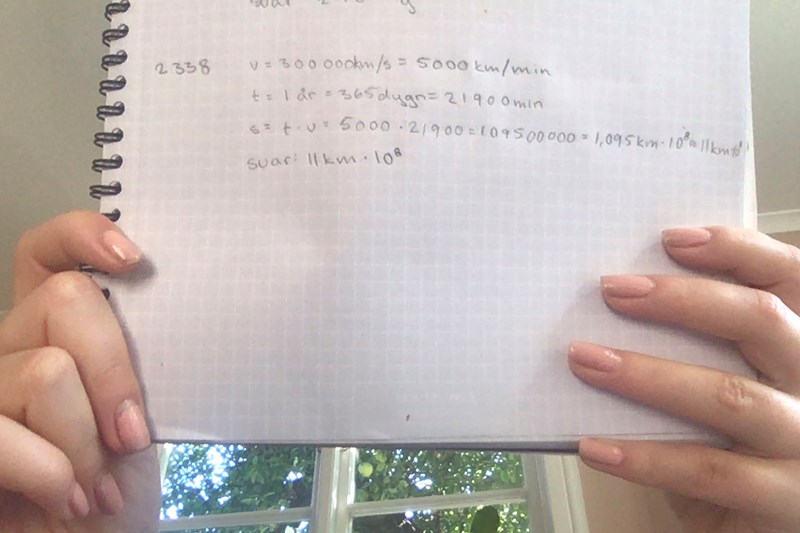 svar
2338 v = 300 000km/s = 5000 km/min
t = 1 år = 365 dygn = 21900min
s = t · v = 5000 · 21900 = 109500000 = 1,095 km · 10⁸ ≈ 11 km · 10⁸
svar: 11 km · 10⁸